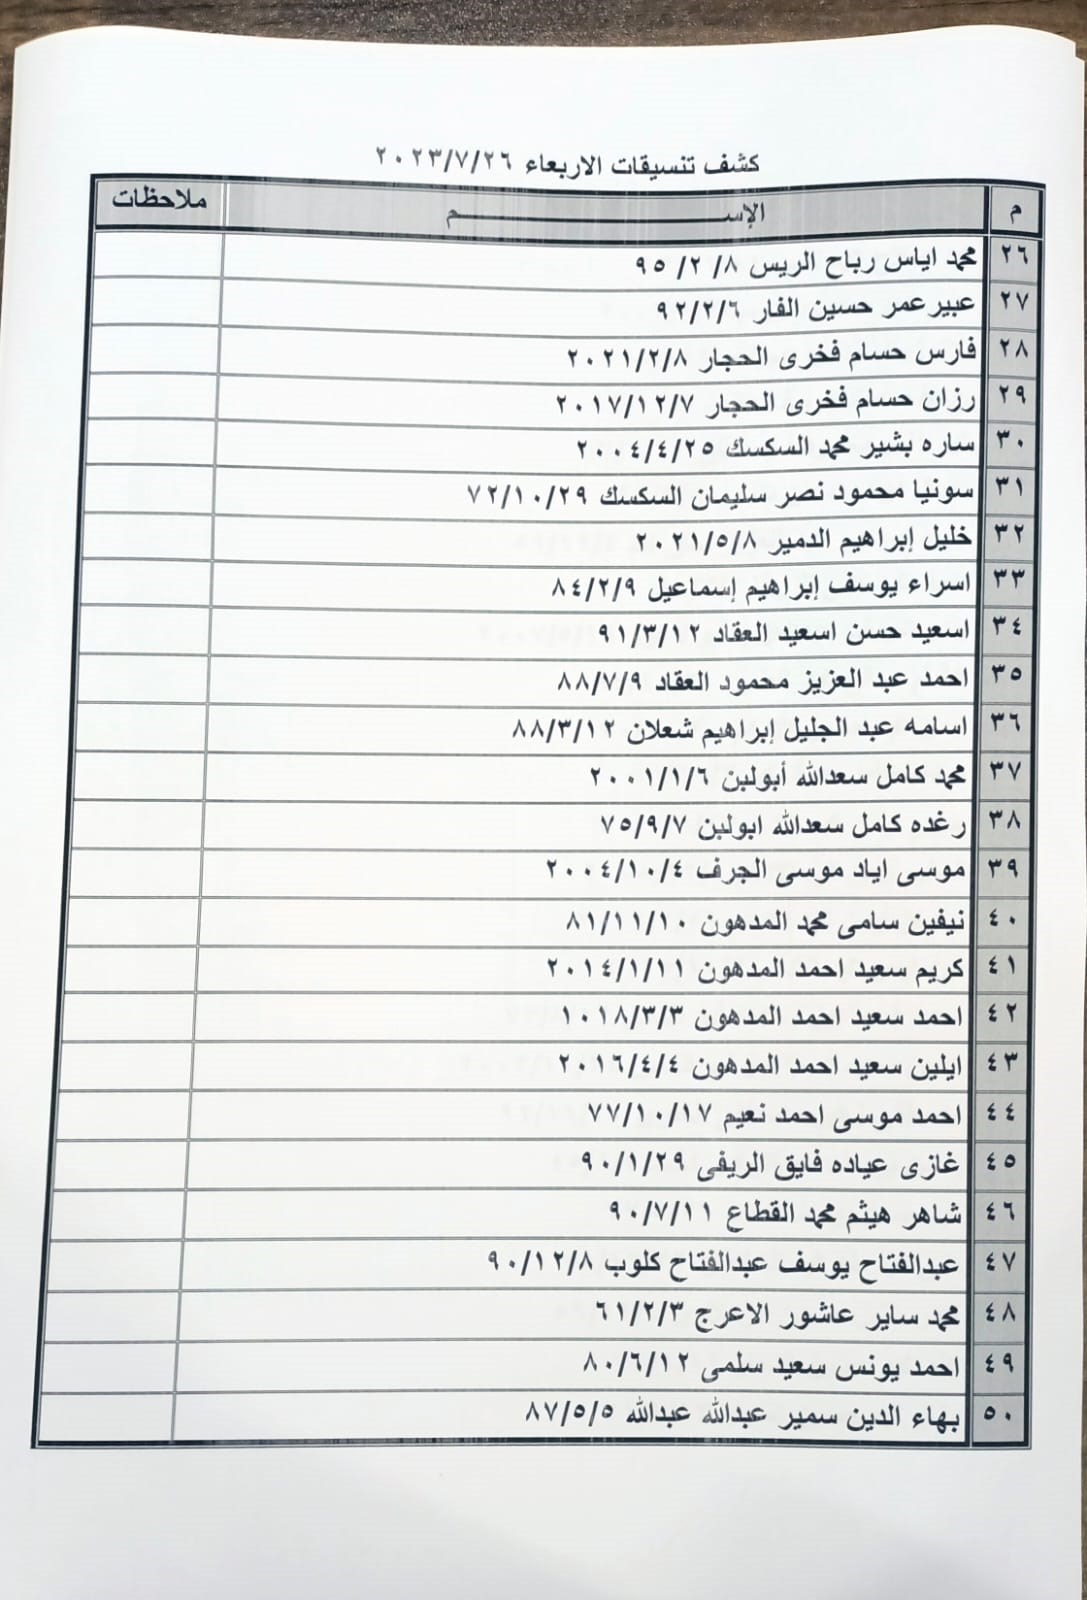 كشف تنسيقات الاربعاء ٢٠٢٣/٧/٢٦
م الإســــــــــــــم ملاحظات
٢٦ محمد اياس رباح الريس ٩٥/٢/٨
٢٧ عبيرعمر حسين الفار ٩٢/٢/٦
٢٨ فارس حسام فخرى الحجار ٢٠٢١/٢/٨
٢٩ رزان حسام فخرى الحجار ٢٠١٧/١٢/٧
٣٠ ساره بشير محمد السكسك ٢٠٠٤/٤/٢٥
٣١ سونيا محمود نصر سليمان السكسك ٧٢/١٠/٢٩
٣٢ خليل إبراهيم الدمير ٢٠٢١/٥/٨
٣٣ اسراء يوسف إبراهيم إسماعيل ٨٤/٢/٩
٣٤ اسعيد حسن اسعيد العقاد ٩١/٣/١٢
٣٥ احمد عبد العزيز محمود العقاد ٨٨/٧/٩
٣٦ اسامه عبد الجليل إبراهيم شعلان ٨٨/٣/١٢
٣٧ محمد كامل سعدالله أبولبن ٢٠٠١/١/٦
٣٨ رغده كامل سعدالله ابولبن ٧٥/٩/٧
٣٩ موسى اياد موسى الجرف ٢٠٠٤/١٠/٤
٤٠ نيفين سامى محمد المدهون ٨١/١١/١٠
٤١ كريم سعيد احمد المدهون ٢٠١٤/١/١١
٤٢ احمد سعيد احمد المدهون ١٠١٨/٣/٣
٤٣ ايلين سعيد احمد المدهون ٢٠١٦/٤/٤
٤٤ احمد موسى احمد نعيم ٧٧/١٠/١٧
٤٥ غازى عياده فايق الريفى ٩٠/١/٢٩
٤٦ شاهر هيثم محمد القطاع ٩٠/٧/١١
٤٧ عبدالفتاح يوسف عبدالفتاح كلوب ٩٠/١٢/٨
٤٨ محمد ساير عاشور الاعرج ٦١/٢/٣
٤٩ احمد يونس سعيد سلمى ٨٠/٦/١٢
٥٠ بهاء الدين سمير عبدالله عبدالله ٨٧/٥/٥